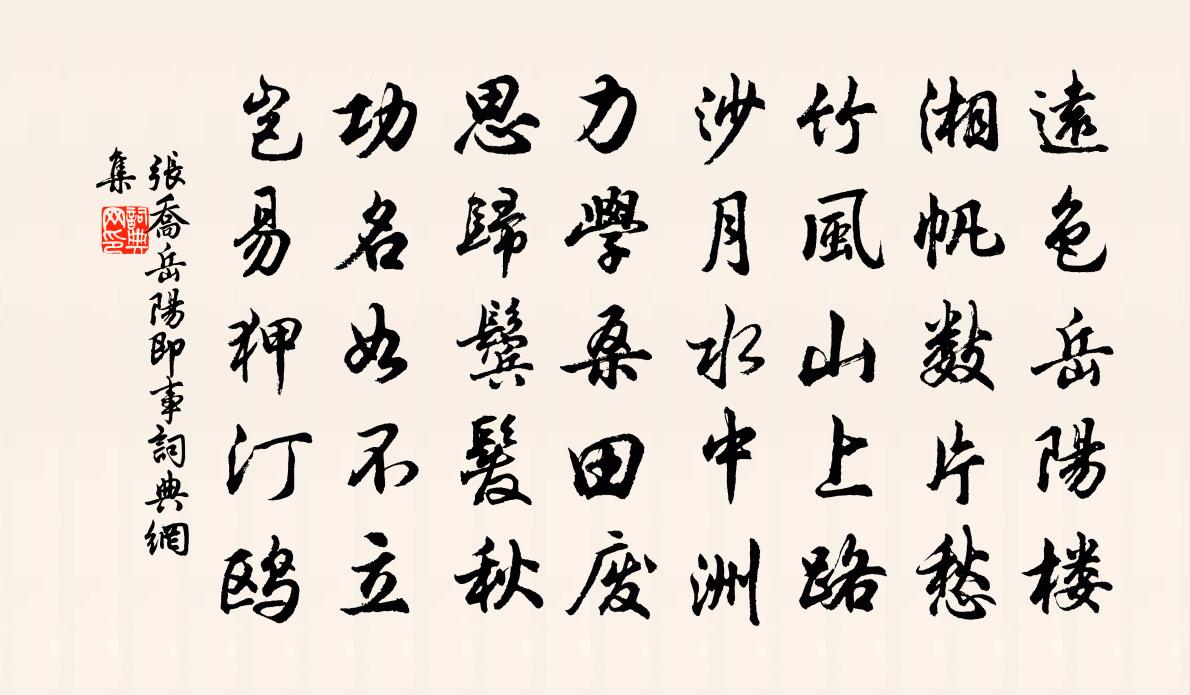 遠色岳陽楼
湘帆數片愁
竹風山上路
沙月水中洲
力學桑田廢
思歸鬢髮秋
功名如不立
豈易狎汀鷗
張喬岳陽即事詞典網
集
詞典
网印